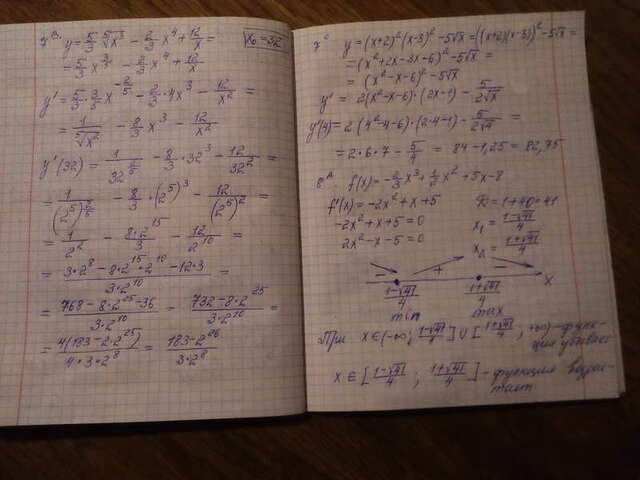 7 В. y = 5/3 ⁵√x³ − 2/3 x⁴ + 12/x =
x₀ = 32
= 5/3 x^(3/5) − 2/3 x⁴ + 12/x
y' = 5/3 · 3/5 x^(−2/5) − 2/3 · 4x³ − 12/x² =
= 1/⁵√x² − 8/3 x³ − 12/x²
y'(32) = 1/32^(2/5) − 8/3 · 32³ − 12/32² =
= 1/(2⁵)^(2/5) − 8/3 · (2⁵)³ − 12/(2⁵)² =
= 1/2² − 8·2¹⁵/3 − 12/2¹⁰ =
= (3·2⁸ − 8·2¹⁵·2¹⁰ − 12·3)/(3·2¹⁰) =
= (768 − 8·2²⁵ − 36)/(3·2¹⁰) = (732 − 8·2²⁵)/(3·2¹⁰) =
= 4(183 − 2·2²⁵)/(4·3·2⁸) = (183 − 2²⁶)/(3·2⁸)
7 С y = (x+2)²(x−3)² − 5√x = ((x+2)(x−3))² − 5√x =
= (x² + 2x − 3x − 6)² − 5√x =
= (x² − x − 6)² − 5√x
y' = 2(x² − x − 6)·(2x − 1) − 5/(2√x)
y'(4) = 2(4² − 4 − 6)·(2·4 − 1) − 5/(2√4) =
= 2·6·7 − 5/4 = 84 − 1,25 = 82,75
8 А. f(x) = −2/3 x³ + 1/2 x² + 5x − 8
f'(x) = −2x² + x + 5
D = 1 + 40 = 41
−2x² + x + 5 = 0
x₁ = (1−√41)/4
2x² − x − 5 = 0
x₂ = (1+√41)/4
− + − x
(1−√41)/4 (1+√41)/4
min max
При x ∈ (−∞; (1−√41)/4] ∪ [(1+√41)/4; +∞) − функ-
ция убывает
x ∈ [(1−√41)/4; (1+√41)/4] − функция возрас-
тает